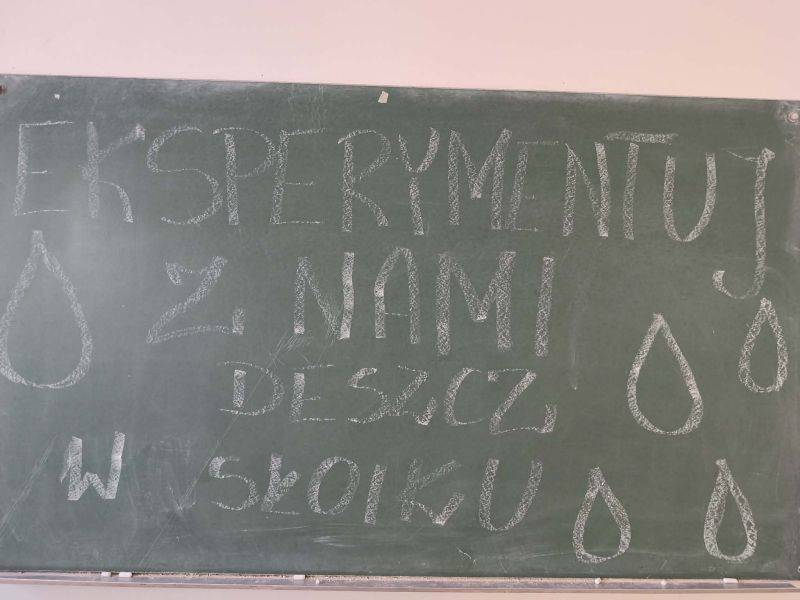 EKSPERYMENTUJ
Z NAMI
DESZCZ
W SŁOIKU